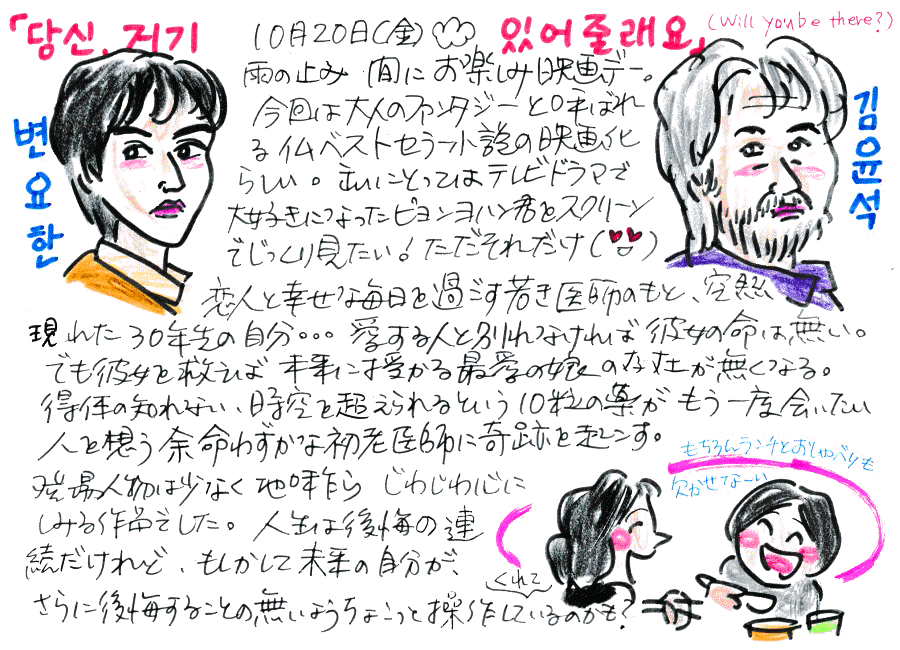 「당신, 저기 있어줄래요」
(Will you be there?)
10月20日(金)
변요한
김윤석
雨の止み間にお楽しみ映画デー。
今回は大人のファンタジーと呼ばれ
る仏ベストセラー小説の映画化
らしい。私にとってはテレビドラマで
大好きになったピョンヨハン君をスクリーン
でじっくり見たい!ただそれだけ
恋人と幸せな毎日を過ごす若き医師のもと、突然
現れた30年先の自分・・・愛する人と別れなければ彼女の命は無い。
でも彼女を救えば未来に授かる最愛の娘の存在が無くなる。
得体の知れない、時空を超えられるという10粒の薬がもう一度会いたい
人を想う余命わずかな初老医師に奇跡を起こす。
登場人物は少なく地味乍ら じわじわ心に
しみる作品でした。人生は後悔の連
続だけれど、もしかして未来の自分が、
さらに後悔することの無いようちょこっと操作してくれているのかも?
もちろんランチとおしゃべりも
欠かせなーい